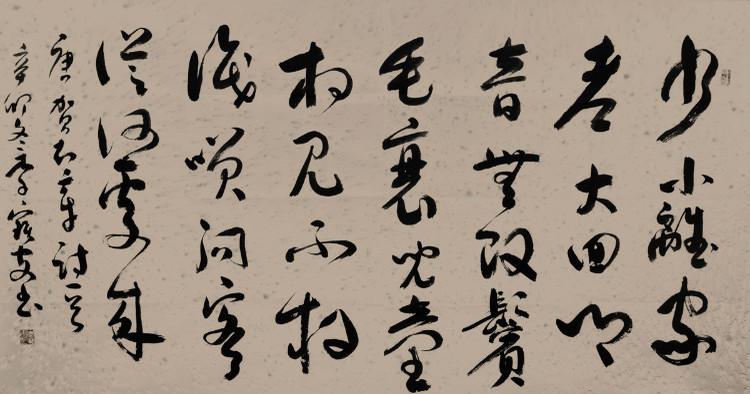 少小離家
老大回鄉
音無改鬢
毛衰兒童
相見不相
識咲問客
從何處來
唐賀知章詩一首
辛卯冬 書